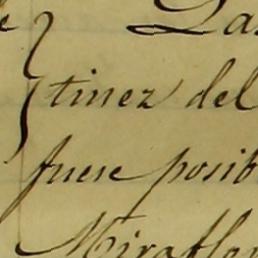 tinez del
fuese posib
Miraflo